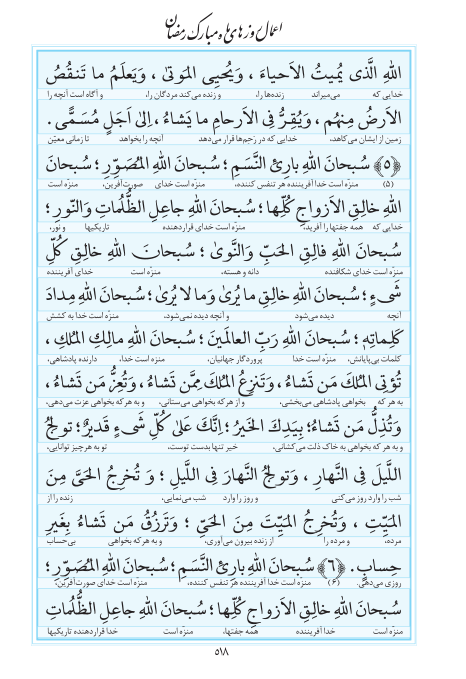 اعمال روزهای ماه مبارک رمضان
اللهِ الَّذی یُمیتُ الاَحیاءَ ، وَیُحیِی المَوتیٰ ، وَیَعلَمُ ما تَنقُصُ
خدایی که می‌میراند زنده‌ها را، و زنده می‌کند مردگان را، و آگاه است آنچه را
الاَرضُ مِنهُم ، وَیُقِرُّ فِی الاَرحامِ ما یَشاءُ ، اِلیٰ اَجَلٍ مُسَمًّی .
زمین از ایشان می‌کاهد، خدایی که در رَحِم‌ها قرار می‌دهد آنچه را بخواهد تا زمانی معیّن
﴿۵﴾ سُبحانَ اللهِ بارِئِ النَّسَمِ ؛ سُبحانَ اللهِ المُصَوِّرِ ؛ سُبحانَ
(۵) منزّه است خدا آفریننده هر تنفس کننده، منزّه است خدای صورت‌آفرین، منزّه است
اللهِ خالِقِ الاَزواجِ کُلِّها ؛ سُبحانَ اللهِ جاعِلِ الظُّلُماتِ وَالنّورِ ؛
خدایی که همه جفتها را آفرید، منزّه است خدای قراردهنده تاریکیها و نور،
سُبحانَ اللهِ فالِقِ الحَبِّ وَالنَّویٰ ؛ سُبحانَ اللهِ خالِقِ کُلِّ
منزّه است خدای شکافنده دانه و هسته، منزّه است خدای آفریننده
شَیءٍ ؛ سُبحانَ اللهِ خالِقِ ما یُریٰ وَما لا یُریٰ ؛ سُبحانَ اللهِ مِدادَ
آنچه دیده می‌شود و آنچه دیده نمی‌شود، منزّه است خدا به کشش
کَلِماتِهِ ؛ سُبحانَ اللهِ رَبِّ العالَمینَ ؛ سُبحانَ اللهِ مالِكِ المُلكِ ،
کلمات بی‌پایانش، منزّه است خدا پروردگار جهانیان، منزه است خدا، دارنده پادشاهی،
تُؤتِی المُلكَ مَن تَشاءُ ، وَتَنزِعُ المُلكَ مِمَّن تَشاءُ ، وَتُعِزُّ مَن تَشاءُ ،
به هر که بخواهی پادشاهی می‌بخشی، و از هر که بخواهی می‌ستانی، و به هر که بخواهی عزت می‌دهی،
وَتُذِلُّ مَن تَشاءُ ؛ بِیَدِكَ الخَیرُ ؛ اِنَّكَ عَلیٰ کُلِّ شَیءٍ قَدیرٌ ؛ تولِجُ
و به هر که بخواهی به خاک ذلت می‌کشانی، خیر تنها بدست توست، تو به هر چیز توانایی،
اللَّیلَ فِی النَّهارِ ، وَتولِجُ النَّهارَ فِی اللَّیلِ ؛ وَ تُخرِجُ الحَیَّ مِنَ
شب را وارد روز می‌کنی و روز را وارد شب می‌نمایی، زنده را از
المَیِّتِ ، وَتُخرِجُ المَیِّتَ مِنَ الحَیِّ ؛ وَتَرزُقُ مَن تَشاءُ بِغَیرِ
مرده، و مرده را از زنده بیرون می‌آوری، و به هر که بخواهی بی‌حساب
حِسابٍ . ﴿۶﴾ سُبحانَ اللهِ بارِئِ النَّسَمِ ؛ سُبحانَ اللهِ المُصَوِّرِ ؛
روزی می‌دهی. (۶) منزّه است خدا آفریننده هر تنفس کننده، منزّه است خدای صورت‌آفرین،
سُبحانَ اللهِ خالِقِ الاَزواجِ کُلِّها ؛ سُبحانَ اللهِ جاعِلِ الظُّلُماتِ
منزّه است خدا آفریننده همه جفتها، منزّه است خدا قراردهنده تاریکیها
۵۱۸